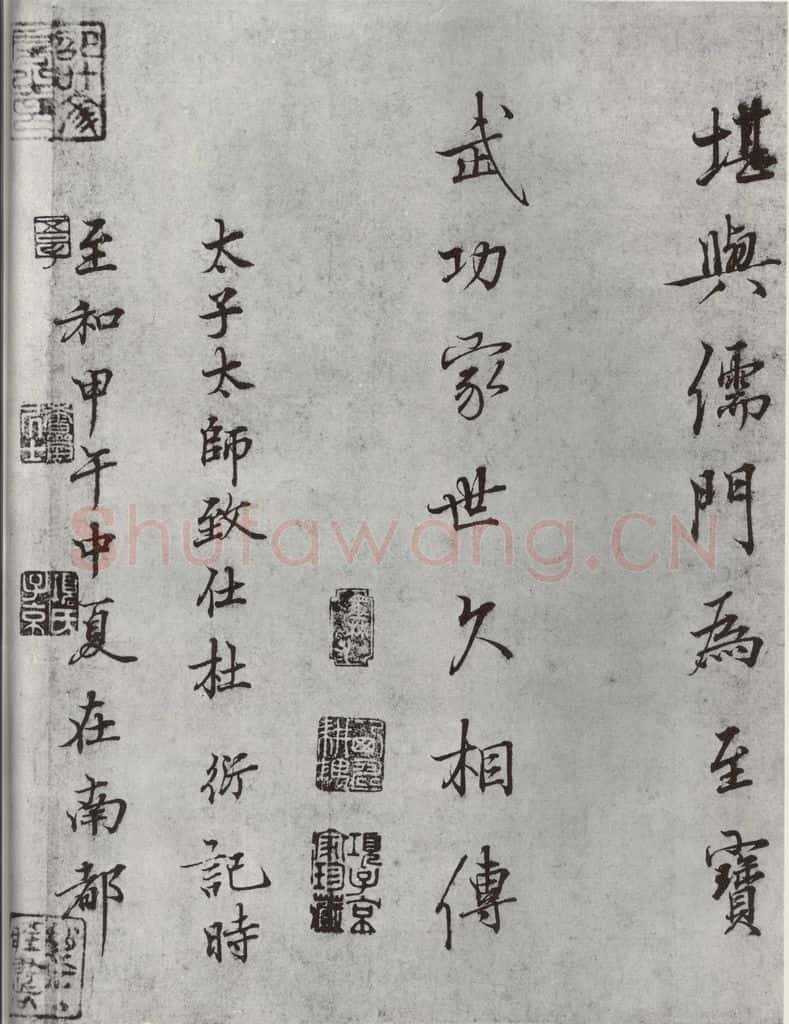 堪與儒門為至寶
武功家世久相傳
太子太師致仕杜衍記時
至和甲午中夏在南都
項子京家珍藏
項氏子京
Shufawang.CN